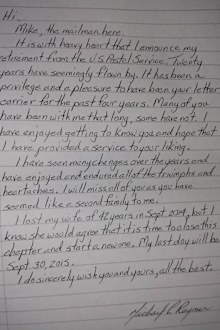 Hi,
Mike, the mailman here.
It is with heavy heart that I announce my
retirement from the U.S. Postal Service. Twenty
years have seemingly flown by. It has been a
privilege and a pleasure to have been your letter
carrier for the past four years. Many of you
have been with me that long, some have not. I
have enjoyed getting to know you and hope that
I have provided a service to your liking.
I have seen many changes over the years and
have enjoyed and endured all of the triumphs and
heartaches. I will miss all of you as you have
seemed like a second family to me.
I lost my wife of 42 years in Sept. 2014, but I
know she would agree that it is time to close this
chapter and start a new one. My last day will be
Sept. 30, 2015.
I do sincerely wish you and yours, all the best.